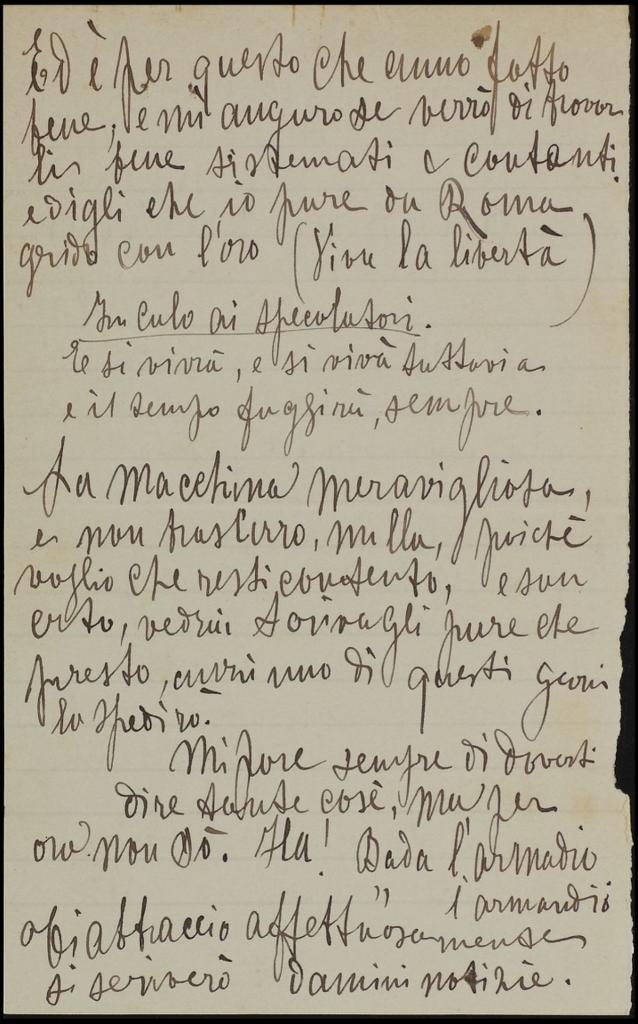 Ed è per questo che anno fatto
bene, e mi auguro se verrò di trovar
li bene sistemati e contanti
e digli che io pure da Roma
grido con l'oro (Viva la libertà)
In culo ai speculatori.
E si vivrà, e si vivà tuttavia
e il tempo fuggirà, sempre.
La Macchina meravigliosa,
e non trascurro, nulla, poichè
voglio che resti contento, e son
certo, vedrai scrivagli pure che
presto, anzi uno di questi giorni
lo spedirò.
Mi pare sempre di doverti
dire tante cose, ma per
ora non sò. Ha! Bada l'armadio
" l'armandio
abbraccio affettuosamente
si scriverò dammi notizie.